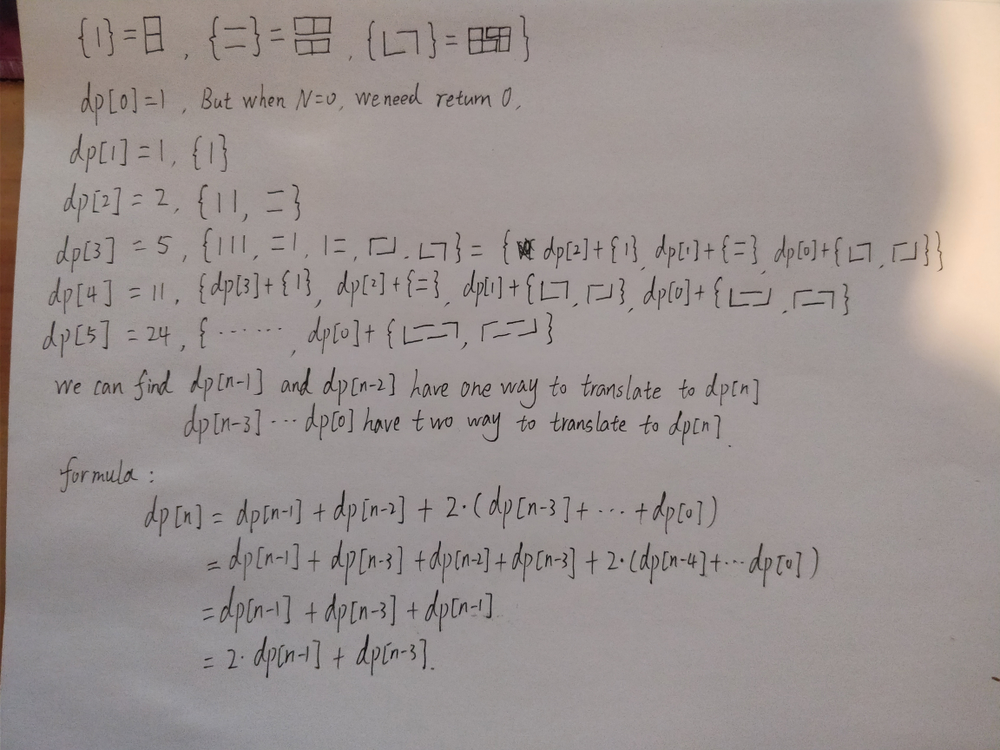 {|}=日, {二}= , {∟¬}= }
dp[0]=1, But when N=0, we need return 0,
dp[1]=1, {|}
dp[2]=2, {||, 二}
dp[3]=5, {|||, 二|, |二, 匚┘, ∟¬}={dp[2]+{|}, dp[1]+{二}, dp[0]+{∟¬, 匚┘}}
dp[4]=11, {dp[3]+{|}, dp[2]+{二}, dp[1]+{∟¬, 匚┘}, dp[0]+{ , }
dp[5]=24, {······, dp[0]+{ , }
we can find dp[n-1] and dp[n-2] have one way to translate to dp[n]
dp[n-3]···dp[0] have two way to translate to dp[n].
formula:
dp[n]=dp[n-1]+dp[n-2]+2·(dp[n-3]+···+dp[0])
=dp[n-1]+dp[n-3]+dp[n-2]+dp[n-3]+2·(dp[n-4]+···dp[0])
=dp[n-1]+dp[n-3]+dp[n-1]
=2·dp[n-1]+dp[n-3].